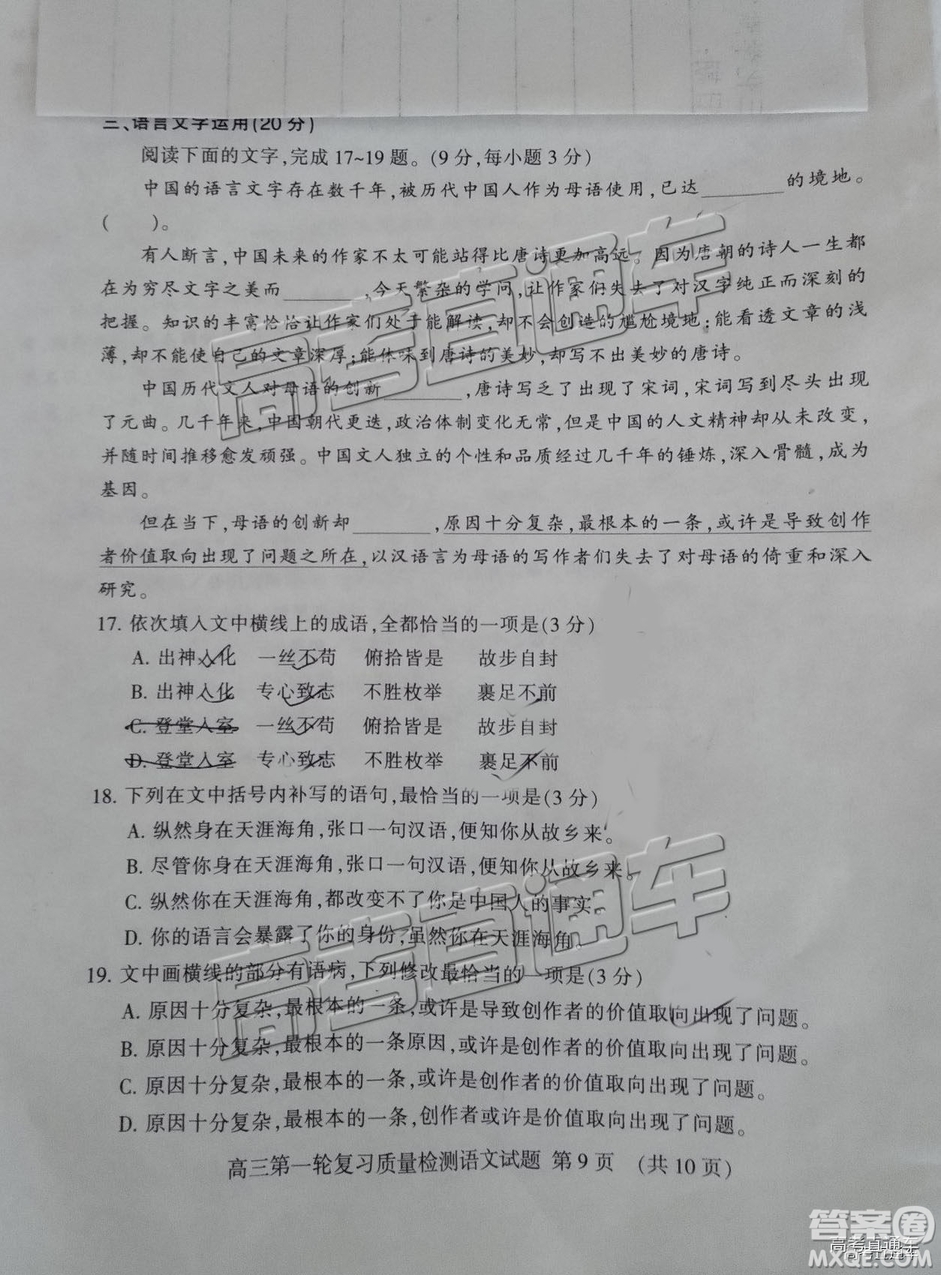 三、语言文字运用(20分)
阅读下面的文字,完成17~19题。(9分,每小题3分)
中国的语言文字存在数千年,被历代中国人作为母语使用,已达________的境地。
(    )。
有人断言,中国未来的作家不太可能站得比唐诗更加高远。因为唐朝的诗人一生都
在为穷尽文字之美而________,今天繁杂的学问,让作家们失去了对汉字纯正而深刻的
把握。知识的丰富恰恰让作家们处于能解读,却不会创造的尴尬境地;能看透文章的浅
薄,却不能使自己的文章深厚;能体味到唐诗的美妙,却写不出美妙的唐诗。
中国历代文人对母语的创新________,唐诗写乏了出现了宋词,宋词写到尽头出现
了元曲。几千年来,中国朝代更迭,政治体制变化无常,但是中国的人文精神却从未改变,
并随时间推移愈发顽强。中国文人独立的个性和品质经过几千年的锤炼,深入骨髓,成为
基因。
但在当下,母语的创新却________,原因十分复杂,最根本的一条,或许是导致创作
者价值取向出现了问题之所在,以汉语言为母语的写作者们失去了对母语的倚重和深入
研究。
17. 依次填入文中横线上的成语,全都恰当的一项是(3分)
A. 出神入化 一丝不苟 俯拾皆是 故步自封
B. 出神入化 专心致志 不胜枚举 裹足不前
C. 登堂入室 一丝不苟 俯拾皆是 故步自封
D. 登堂入室 专心致志 不胜枚举 裹足不前
18. 下列在文中括号内补写的语句,最恰当的一项是(3分)
A. 纵然身在天涯海角,张口一句汉语,便知你从故乡来。
B. 尽管你身在天涯海角,张口一句汉语,便知你从故乡来。
C. 纵然你身在天涯海角,都改变不了你是中国人的事实。
D. 你的语言会暴露了你的身份,虽然你在天涯海角。
19. 文中画横线的部分有语病,下列修改最恰当的一项是(3分)
A. 原因十分复杂,最根本的一条,或许是导致创作者的价值取向出现了问题。
B. 原因十分复杂,最根本的一条原因,或许是创作者的价值取向出现了问题。
C. 原因十分复杂,最根本的一条,或许是创作者的价值取向出现了问题。
D. 原因十分复杂,最根本的一条,创作者或许是价值取向出现了问题。
高三第一轮复习质量检测语文试题 第9页 (共10页)
高考直通车
高考直通车
答案圈
高考直通车
MXQE.COM